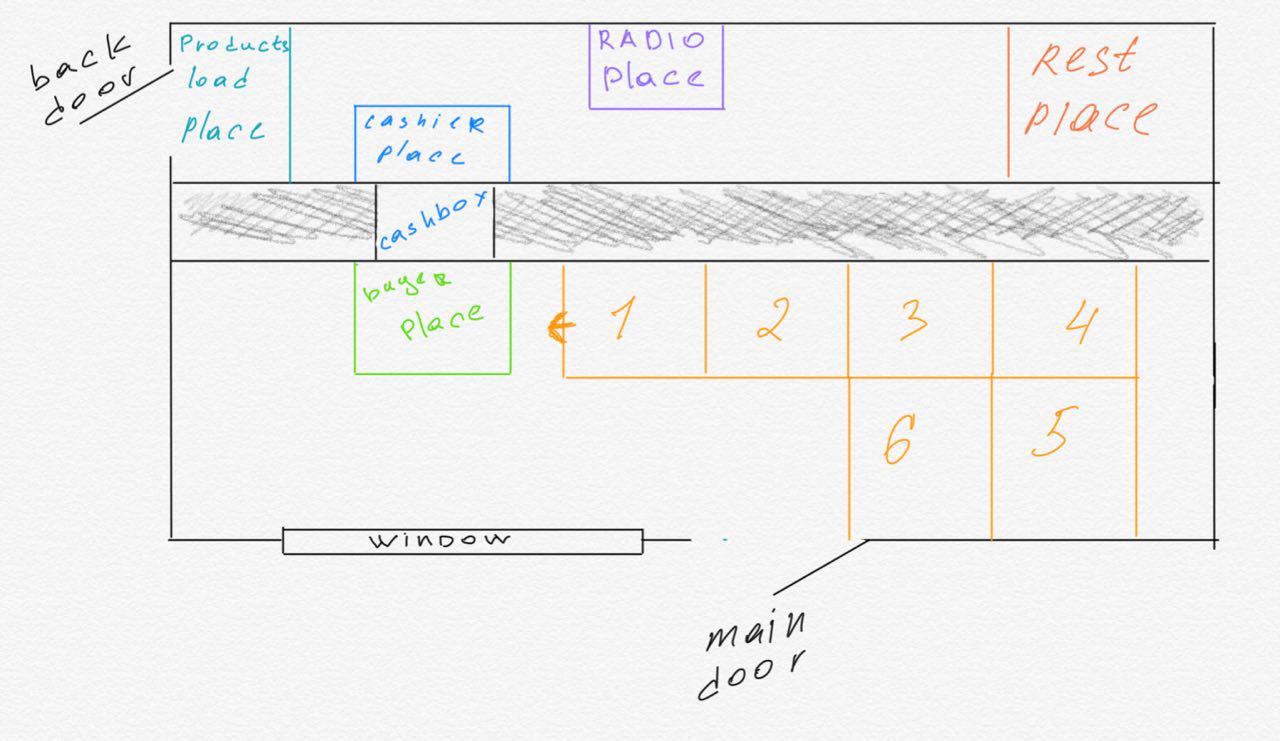 back
door
Products
load
place
cashieR
place
RADIO
place
Rest
place
cashbox
buyeR
place
1
2
3
4
6
5
window
main
door